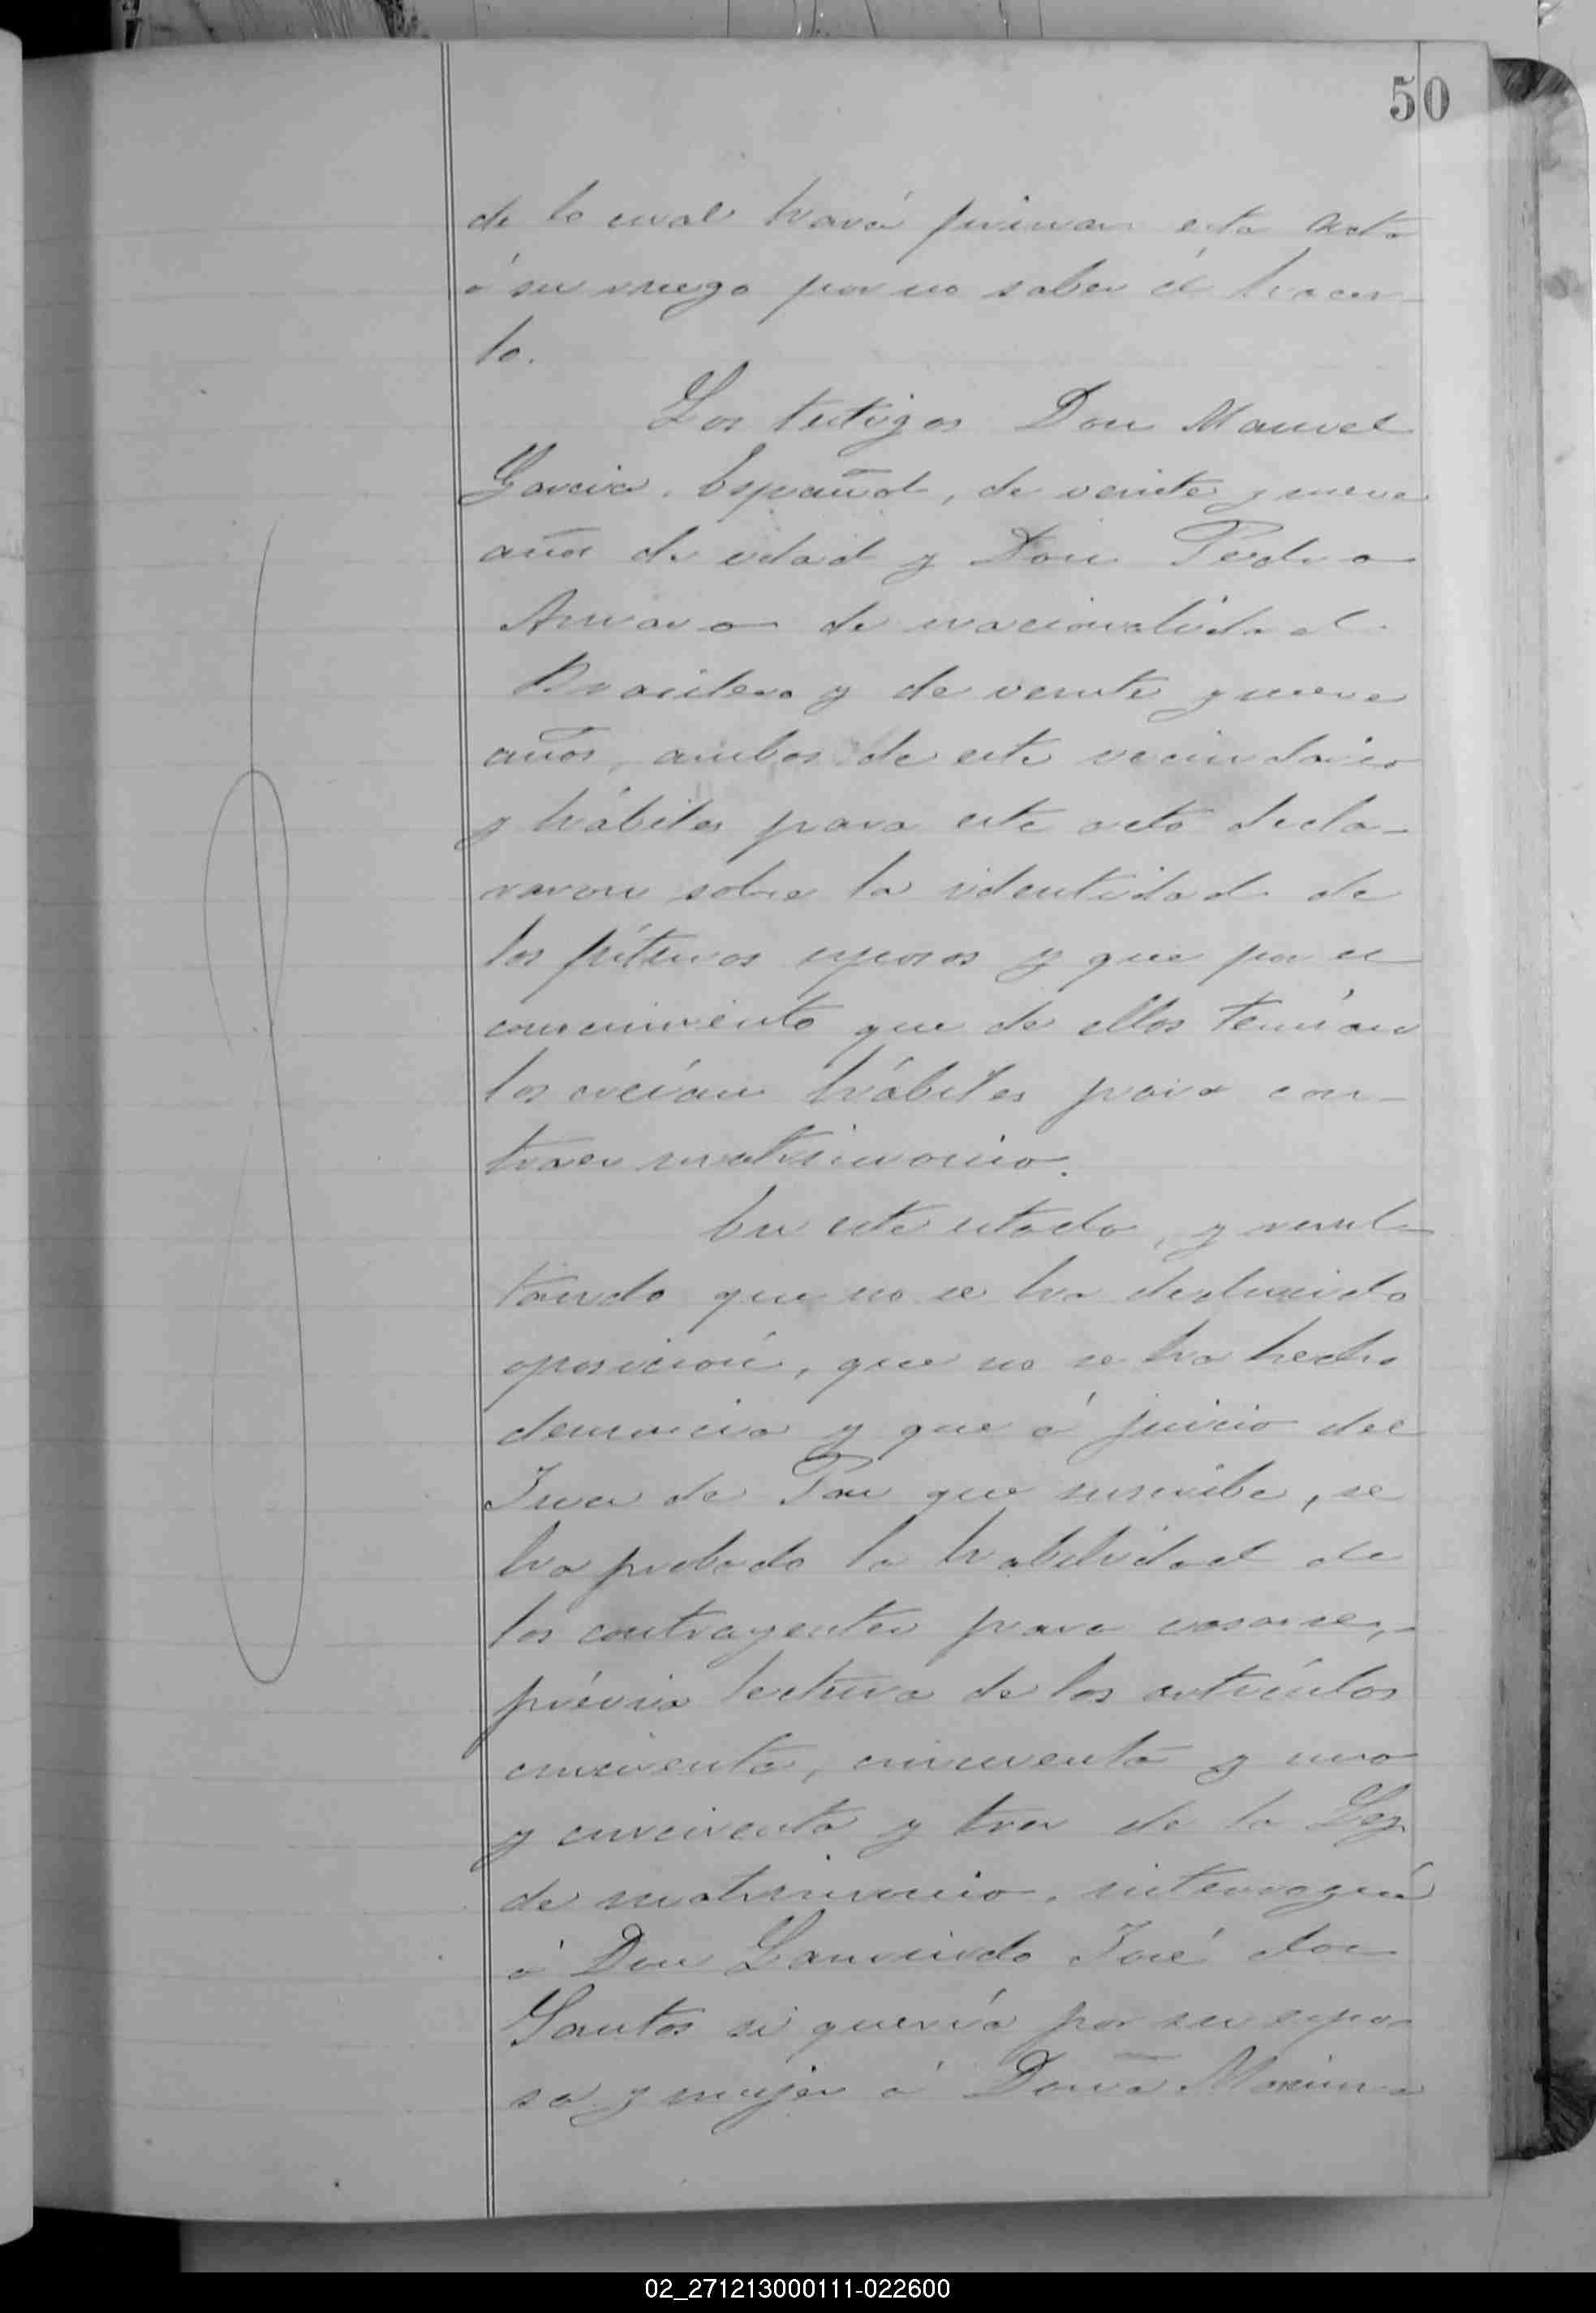 50
de lo cual hará firmar esta acta
á su ruego por no saber él hacer-
lo.
Los testigos Don Manuel
Garcia, Español, de veinte y nueve
años de edad y Don Pedro
de nacionalidad
Brasilera y de veinte y nueve
años, ambos de este vecindario
y hábiles para este acto decla-
raron sobre la identidad de
los futuros esposos y que por el
conocimiento que de ellos tenían
los creían hábiles para con-
traer matrimonio.
En este estado, y resul-
tando que no se ha deducido
oposición, que no se ha hecho
denuncia y que á juicio del
Juez de Paz que suscribe, se
ha probado la habilidad de
los contrayentes para casarse,
prévia lectura de los artículos
cincuenta, cincuenta y uno
y cincuenta y tres de la Ley
de matrimonio, interrogué
á Don Laurindo José dos
Santos si quería por su espo-
sa y mujer á Doña
02_271213000111-022600